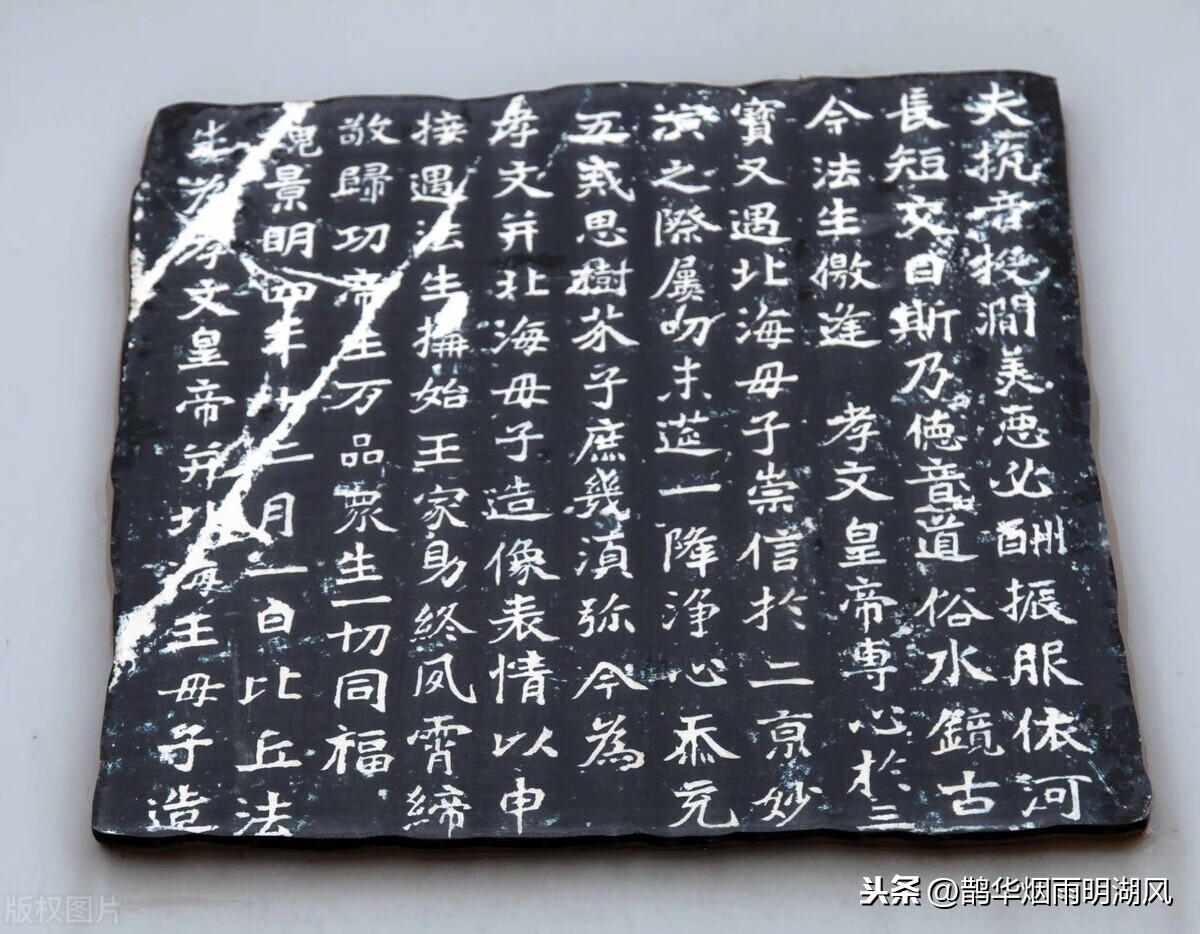 夫抗音投澗美惡必酬振服依河
長短交目斯乃德音道俗水鏡古
今法生儌逢 孝文皇帝專心於三
寶又遇北海母子崇信於二京妙
演之際屢叨末筵一降淨心忝充
五戒思樹芥子庶幾湏弥今為
孝文并北海母子造像表情以申
接遇法生搆始王家助終夙霄締
敬歸功帝王万品眾生一切同福
魏景明四年十二月一日比丘法
生為孝文皇帝并北海王母子造
头条 @鹊华烟雨明湖风
版权图片